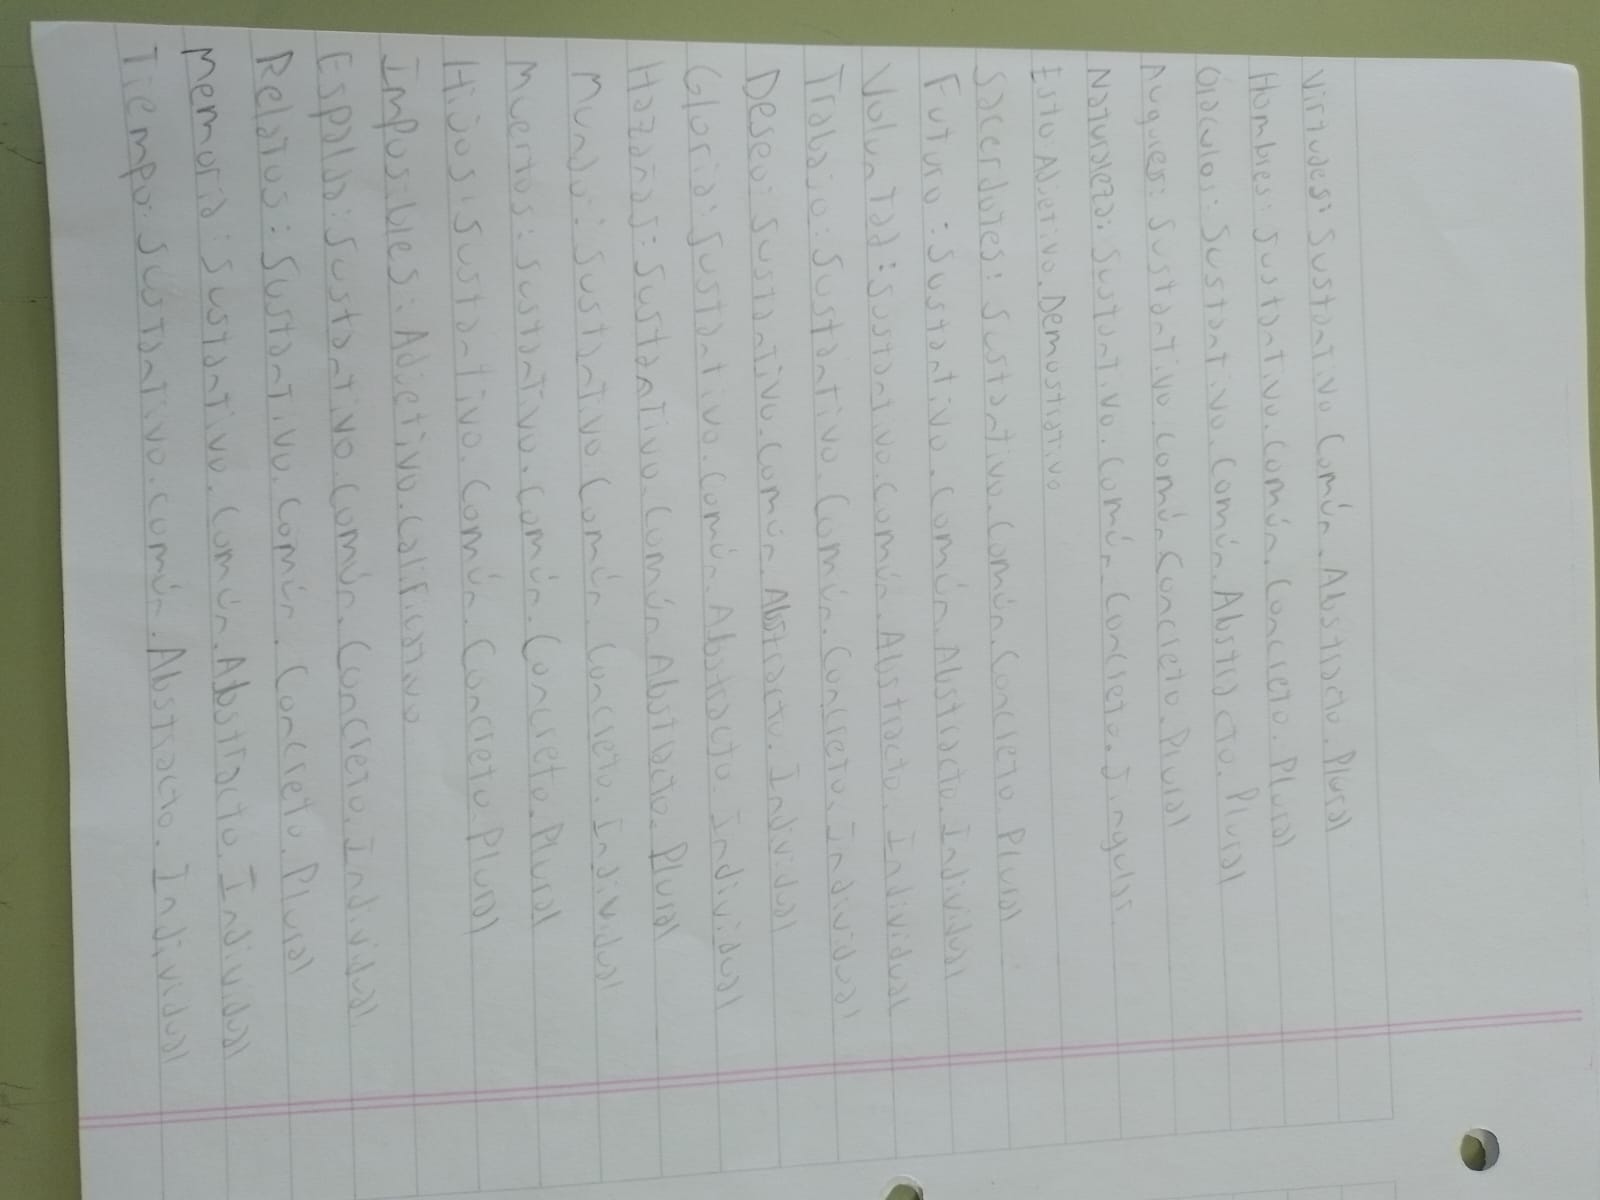 Virtudes: Sustantivo Común. Abstracto. Plural
Hombres: Sustantivo. Común. Concreto. Plural
Oraculos: Sustantivo. Común. Abstracto. Plural
Augures: Sustantivo. Común. Concreto. Plural
Naturaleza: Sustantivo. Común. Concreto. Singular.
Esto: Adjetivo. Demostrativo
Sacerdotes: Sustantivo. Común. Concreto. Plural
Futuro: Sustantivo. Común. Abstracto. Individual
Voluntad: Sustantivo. Común. Abstracto. Individual
Trabajo: Sustantivo. Común. Concreto. Individual
Deseo: Sustantivo. Común. Abstracto. Individual
Gloria: Sustantivo. Común. Abstracto. Individual
Hazañas: Sustantivo. Común. Abstracto. Plural
Mundo: Sustantivo Común. Concreto. Individual
Muertos: Sustantivo. Común. Concreto. Plural
Hijos: Sustantivo. Común. Concreto. Plural
Imposibles: Adjetivo. Calificativo
Espalda: Sustantivo. Común. Concreto. Individual
Relatos: Sustantivo. Común. Concreto. Plural
Memoria: Sustantivo. Común. Abstracto. Individual
Tiempo: Sustantivo. Común. Abstracto. Individual